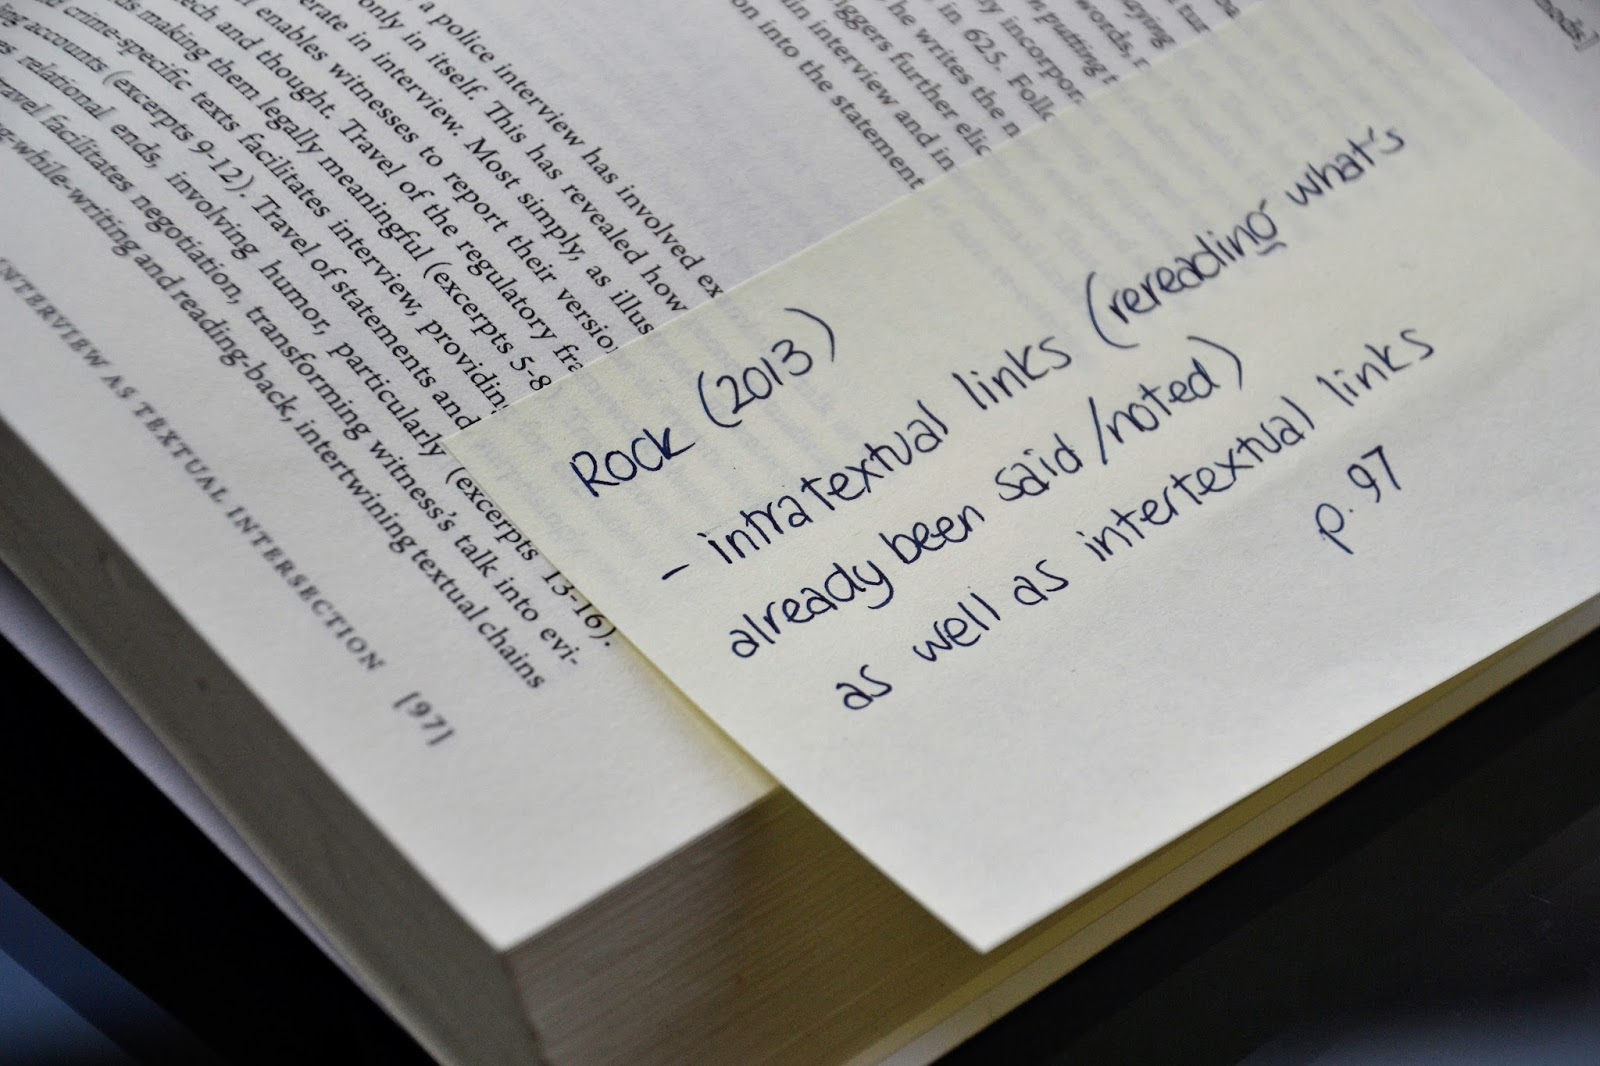 a police interview has involved ex
only in itself. This has revealed how
erate in interview. Most simply, as illus
enables witnesses to report their versio
ech and thought. Travel of the regulatory fra
ds making them legally meaningful (excerpts 5-8
d crime-specific texts facilitates interview, providin
ng accounts (excerpts 9-12). Travel of statements and
es relational ends, involving humor, particularly (excerpts 13-16).
ravel facilitates negotiation, transforming witness's talk into evi-
g-while-writing and reading-back, intertwining textual chains
INTERVIEW AS TEXTUAL INTERSECTION [97]
in 625. Follo
y incorpor
putting t
words,
aying
he writes the n
iggers further elic
in interview and in
on into the statement
Rock (2013)
- intratextual links (rereading what's
already been said /noted)
as well as intertextual links
p. 97